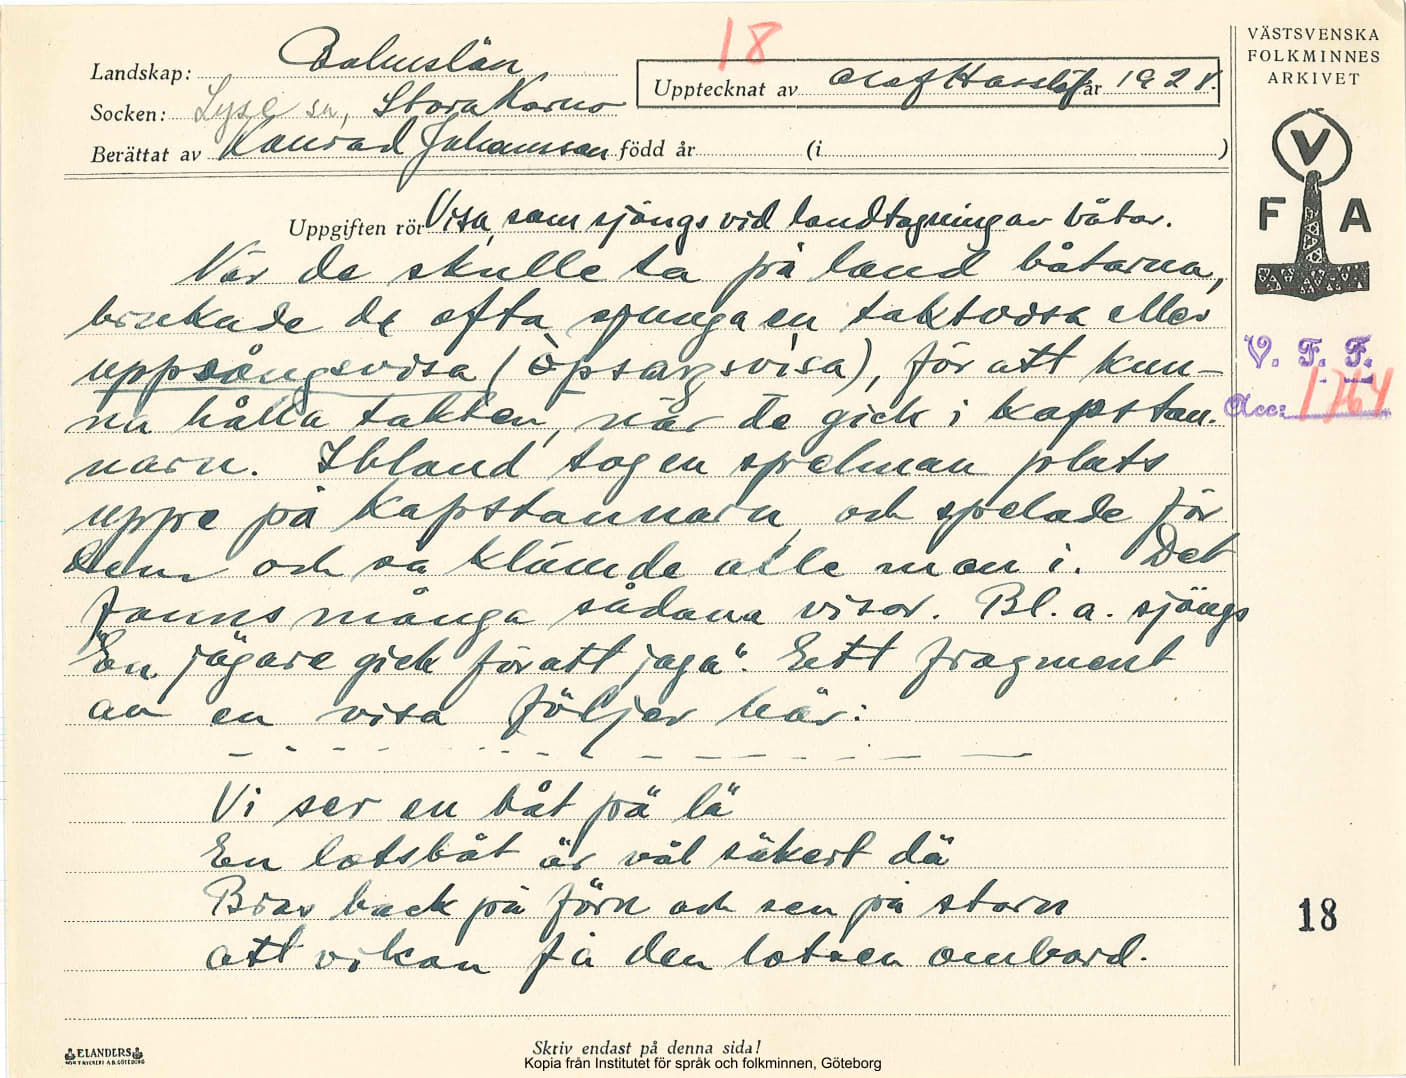 18
Landskap: Bohuslän
Upptecknat av Olof Hasslöf år 1928.
Socken: Lyse sn, Stora Kornö
Berättat av Konrad Johansson född år (i )
VÄSTSVENSKA
FOLKMINNES
ARKIVET
V
F A
V. F. F.
Acc: 1764
18
Uppgiften rör Visa, som sjöngs vid landtagning av båtar.
När de skulle ta på land båtarna,
brukade de ofta sjunga en taktvisa eller
uppsångsvisa (òpsangsvisa), för att kun-
na hålla takten, när de gick i kapstan-
narn. Ibland tog en spelman plats
uppe på kapstannarn, och spelade för
dem och sa klämde alle man i. Det
fanns många sådana visor. Bl. a. sjöngs
"En jägare gick för att jaga". Ett fragment
av en visa följer här:
Vi ser en båt på lä
En lotsbåt är väl säkert dä
Bras back på förn och sen på storn
att vi kan få den lotsen ombord.
ELANDERS
Skriv endast på denna sida!
Kopia från Institutet för språk och folkminnen, Göteborg